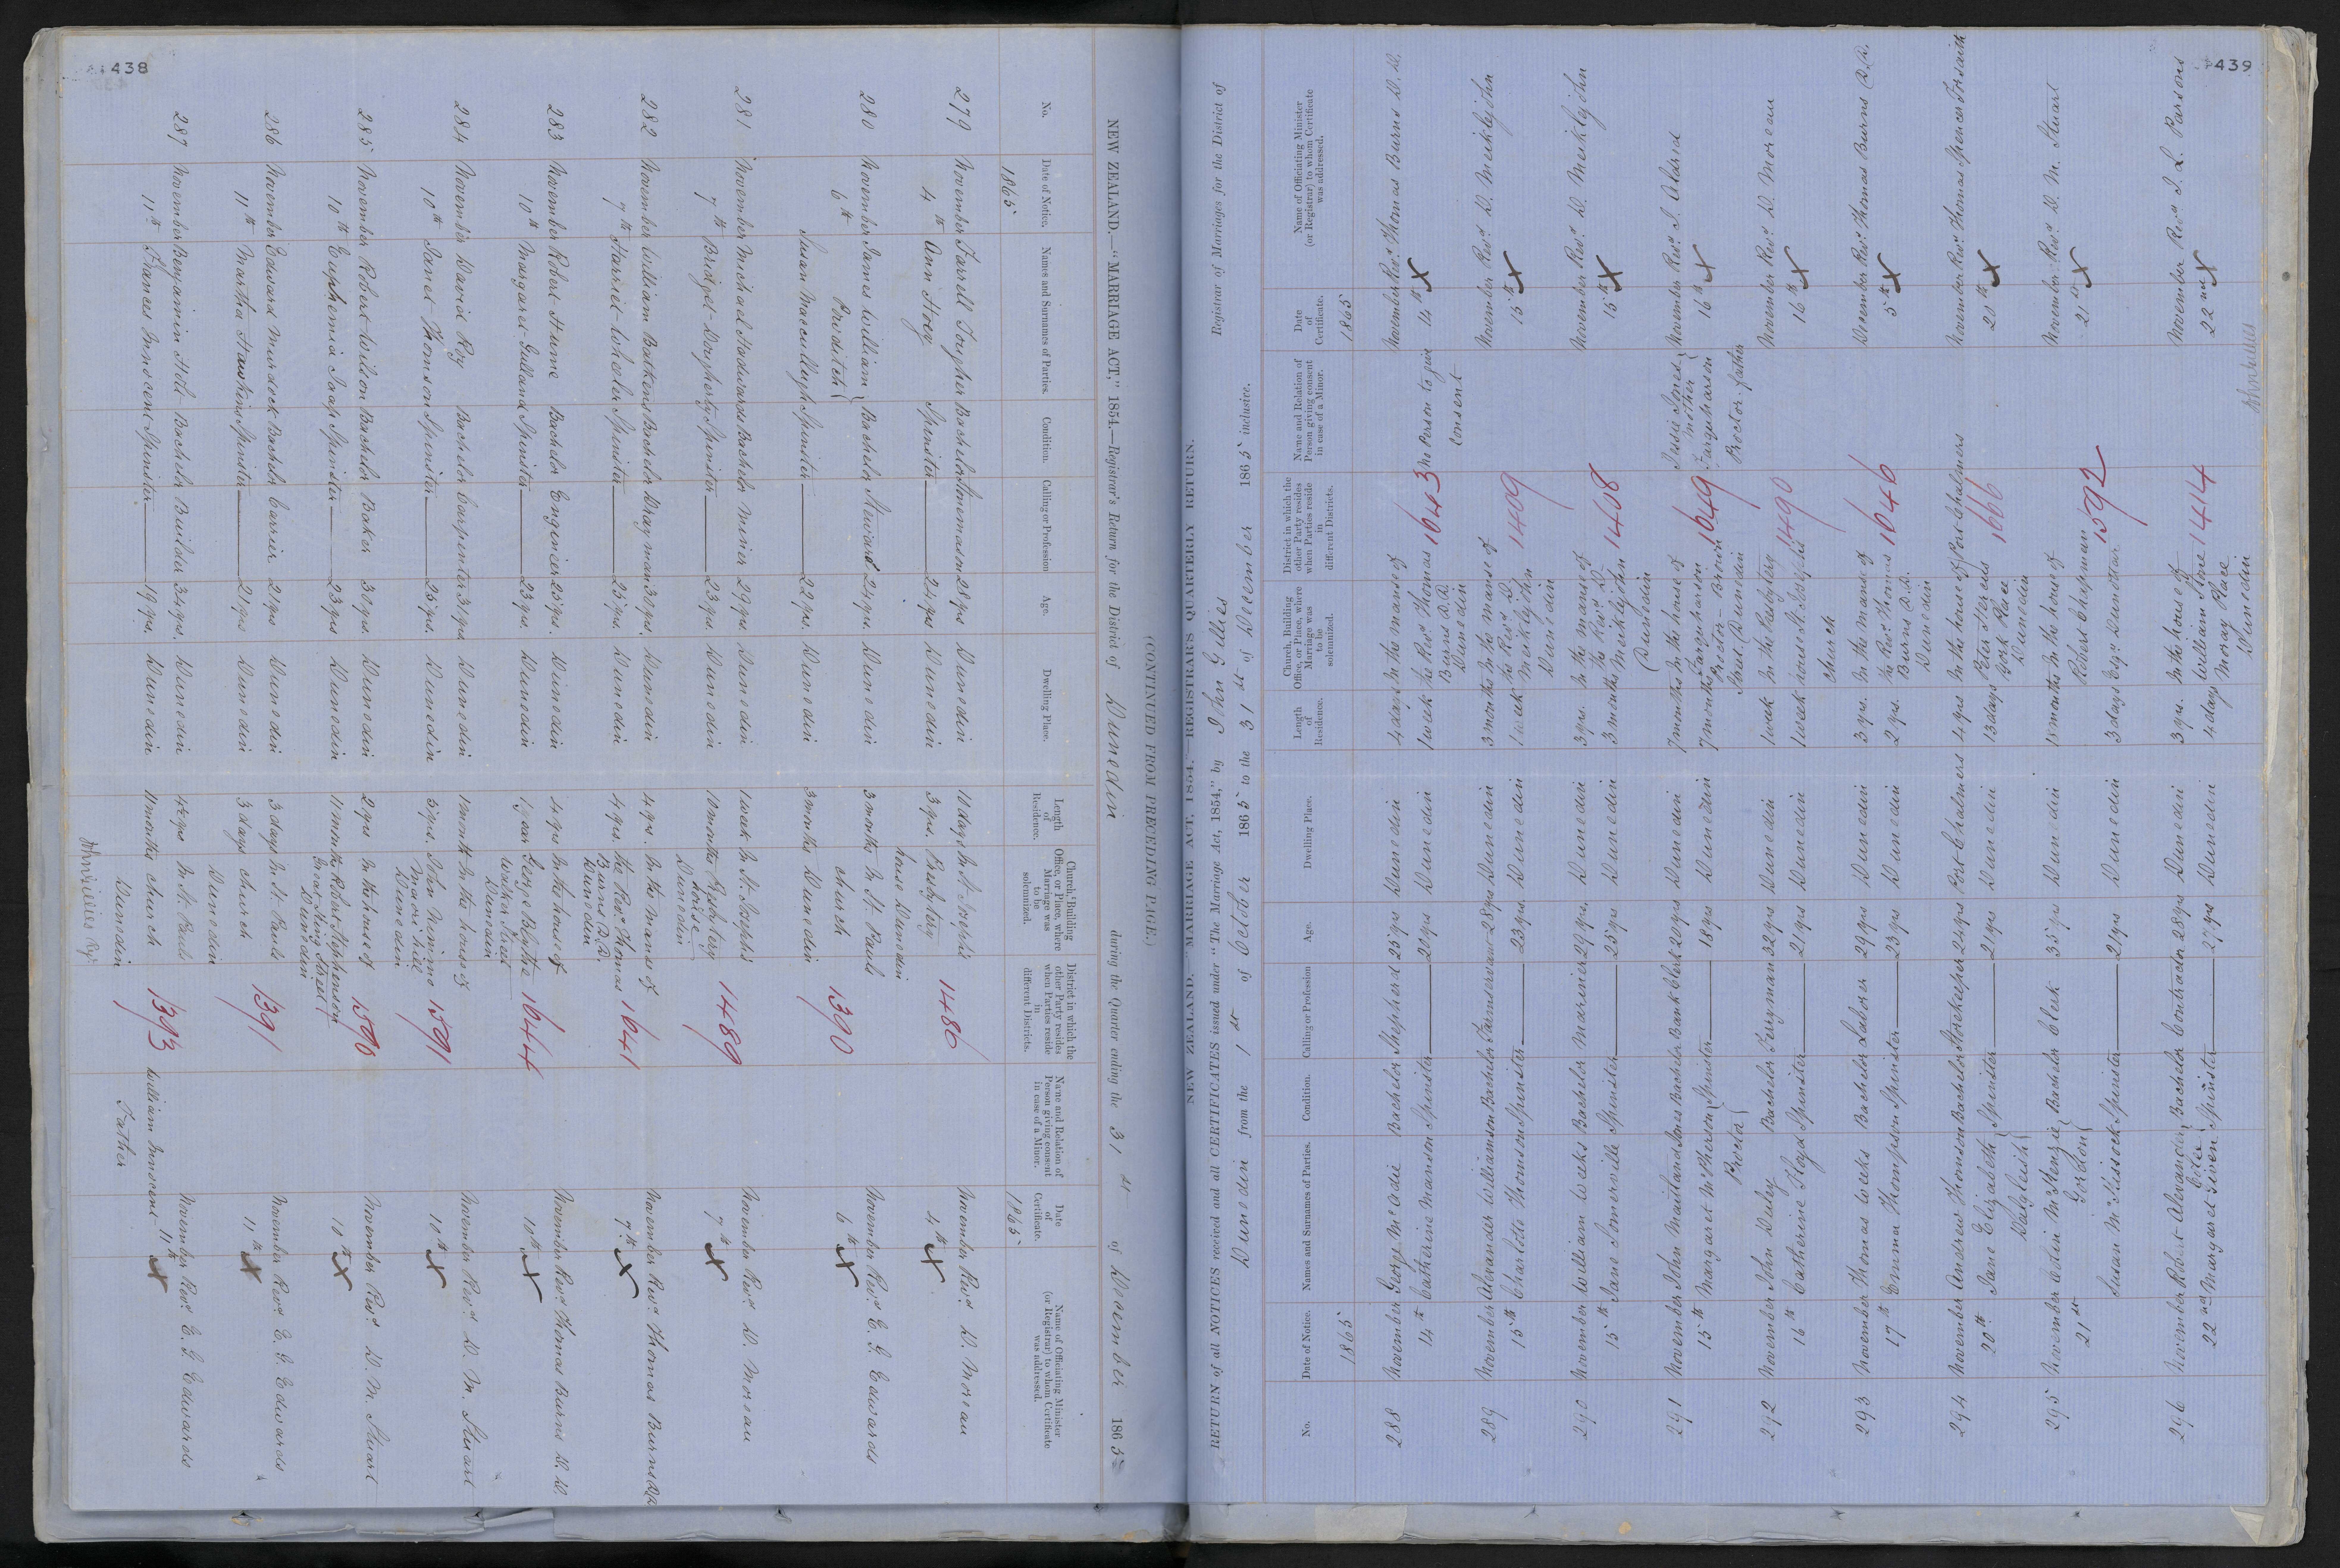 438
NEW ZEALAND.—"MARRIAGE ACT," 1854.—Registrar's Return for the District of Dunedin during the Quarter ending the 31st of December 1865
No. Date of Notice. Names and Surnames of Parties. Condition. Calling or Profession Age. Dwelling Place. Length of Residence. Church, Building Office, or Place, where Marriage was to be solemnized. District in which the other Party resides when Parties reside in different Districts. Name and Relation of Person giving consent in case of a Minor. Date of Certificate. Name of Officiating Minister (or Registrar) to whom Certificate was addressed.
1865 1865
279 November Farrell Tougher Bachelor Stonemason 28 yrs Dunedin 10 days In St. Joseph's 1486 November Revd. D. Moreau
4th Ann Hoey Spinster 24 yrs Dunedin 3 yrs. Presbytery 4th X
house Dunedin
280 November James William Bachelor Steward 24 yrs. Dunedin 3 months In St. Pauls 1390 November Revd. E. G. Edwards
6th Powditch church 6th X
Susan Maccullogh Spinster 22 yrs. Dunedin 3 months Dunedin
281 November Michael Hadwards Bachelor Miner 29 yrs. Dunedin 1 week In St. Joseph's 1489 November Revd. D. Moreau
7th Bridget Dougherty Spinster 23 yrs. Dunedin 10 months Presbytery 7th X
house
Dunedin
282 November William Bathens Bachelor Drayman 30 yrs. Dunedin 4 yrs. In the manse of 1641 November Revd. Thomas Burns D.D.
7th Harriet Wheeler Spinster 25 yrs. Dunedin 4 yrs. the Revd. Thomas 7th X
Burns D.D.
Dunedin
283 November Robert Hume Bachelor Engineer 25 yrs. Dunedin 4 yrs In the house of 1644 November Revd. Thomas Burns D.D.
10th Margaret Gulland Spinster 23 yrs. Dunedin 1 year George Blythe 10th X
Walker Street
Dunedin
284 November David Roy Bachelor Carpenter 31 yrs Dunedin 1 month In the house of 1591 November Revd. D. M. Stuart
10th Janet Thomson Spinster 25 yrs. Dunedin 5 yrs. John Nimmo 10th X
Maori hill
Dunedin
285 November Robert Wilson Bachelor Baker 30 yrs. Dunedin 2 yrs In the house of 1590 November Revd. D. M. Stuart
10th Euphemia Jaap Spinster 23 yrs Dunedin 11 months Robert Stephenson 10th X
Great King Street
Dunedin
286 November Edward Murdock Bachelor Carrier 21 yrs Dunedin 3 days In St. Pauls 1391 November Revd. E. G. Edwards
11th Martha Hawkins Spinster 21 yrs Dunedin 3 days church 11th X
Dunedin
287 November Benjamin Holt Bachelor Builder 34 yrs. Dunedin 4½ yrs In St. Pauls 1393 William Innocent November Revd. E. G. Edwards
11th Frances Innocent Spinster 19 yrs. Dunedin 11 months church Father 11th X
Dunedin
John Gillies Regr.
439
(CONTINUED FROM PRECEDING PAGE.)
NEW ZEALAND. "MARRIAGE ACT, 1854."—REGISTRAR'S QUARTERLY RETURN.
RETURN of all NOTICES received and all CERTIFICATES issued under "The Marriage Act, 1854," by John Gillies Registrar of Marriages for the District of
Dunedin from the 1st of October 1865 to the 31st of December 1865 inclusive.
No. Date of Notice. Names and Surnames of Parties. Condition. Calling or Profession Age. Dwelling Place. Length of Residence. Church, Building Office, or Place, where Marriage was to be solemnized. District in which the other Party resides when Parties reside in different Districts. Name and Relation of Person giving consent in case of a Minor. Date of Certificate. Name of Officiating Minister (or Registrar) to whom Certificate was addressed.
1865 1865
288 November George McAdie Bachelor Shepherd 25 yrs Dunedin 4 days In the manse of 1643 No Person to give November Revd. Thomas Burns D.D.
14th Catherine Manson Spinster 20 yrs Dunedin 1 week the Revd. Thomas Consent 14th X
Burns D.D.
Dunedin
289 November Alexander Williamson Bachelor Farmservant 28 yrs Dunedin 3 months In the manse of 1409 November Revd. D. Meiklejohn
15th Charlotte Thomson Spinster 23 yrs. Dunedin 1 week the Revd. D. 15th X
Meiklejohn
Dunedin
290 November William Weeks Bachelor Mariner 29 yrs. Dunedin 3 yrs. In the manse of 1408 November Revd. D. Meiklejohn
15th Jane Somerville Spinster 25 yrs Dunedin 3 months the Revd. D. 15th X
Meiklejohn
Dunedin
291 November John Maitland Jones Bachelor Bank Clerk 20 yrs Dunedin 7 months In the house of 1649 Jones November Revd. J. Aldred
15th Margaret McPherson Spinster 18 yrs Dunedin 7 months Farquharson mother 16th X
Proctor Proctor - Brown Farquharson
Street Dunedin Proctor - father
292 November John Duley Bachelor Ferryman 32 yrs Dunedin 1 week In the Presbytery 1490 November Revd. D. Moreau
16th Catherine Floyd Spinster 21 yrs Dunedin 1 week house St. Josephs 16th X
church
293 November Thomas Weeks Bachelor Laborer 29 yrs Dunedin 3 yrs. In the Manse of 1646 December Revd. Thomas Burns D.D.
17th Emma Thompson Spinster 23 yrs Dunedin 2 yrs. the Revd. Thomas 5th X
Burns D.D.
Dunedin
294 November Andrew Thomson Bachelor Storekeeper 24 yrs Port Chalmers 4 yrs In the house of Port Chalmers November Revd. Thomas Spencer Forsaith
20th Jane Elizabeth Spinster 21 yrs Dunedin 13 days Peter 1666 20th X
Dalgleish York Place
Dunedin
295 November Colin McKenzie Bachelor Clerk 35 yrs Dunedin 18 months In the house of 1592 November Revd. D. M. Stuart
21st Gordon Robert Chapman 21st X
Susan McKissock Spinster 21 yrs Dunedin 3 days Esqr. Dunedin
296 November Robert Alexander Bachelor Contractor 28 yrs Dunedin 3 yrs. In the house of 1414 November Revd. J. L. Parsons
22nd Spinster 27 yrs Dunedin 4 days William Stone 22nd X
Margaret Given Moray Place
Dunedin
John Gillies